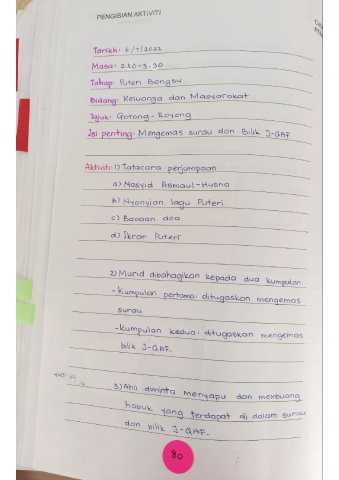 PENGISIAN AKTIVITI
Tarikh: 6/7/2022
Masa: 2.30-3.30
Tahap: Puteri Bongsu
Bidang: Keluarga dan Masyarakat
Tajuk: Gotong-Royong
Isi penting: Mengemas surau dan Bilik J-QAF
Aktiviti: 1) Tatacara perjumpaan
a) Masyid Asmaul-Husna
b) Nyanyian lagu Puteri
c) Bacaan doa
d) Ikrar Puteri
2) Murid dibahagikan kepada dua kumpulan.
- Kumpulan pertama: ditugaskan mengemas
surau
- Kumpulan kedua: ditugaskan mengemas
bilik J-QAF.
3) Ahli diminta menyapu dan membuang
habuk yang terdapat di dalam surau
dan bilik J-QAF.
80